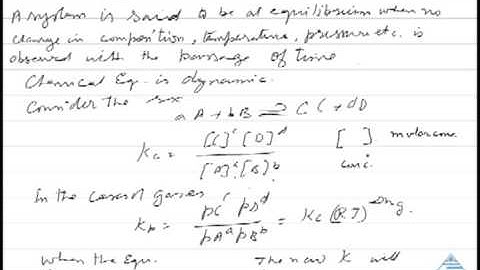 A system is said to be at equilibrium when no
change in composition, temperature, pressure etc. is
observed with the passage of time
Chemical Eq. is dynamic.
Consider the rxn
aA + bB ⇌ cC + dD
Kc = [C]^c [D]^d / [A]^a [B]^b [ ] molar conc.
In the case of gases
Kp = pC^c pD^d / pA^a pB^b = Kc (RT)^Δng
When the Equ. The new K will